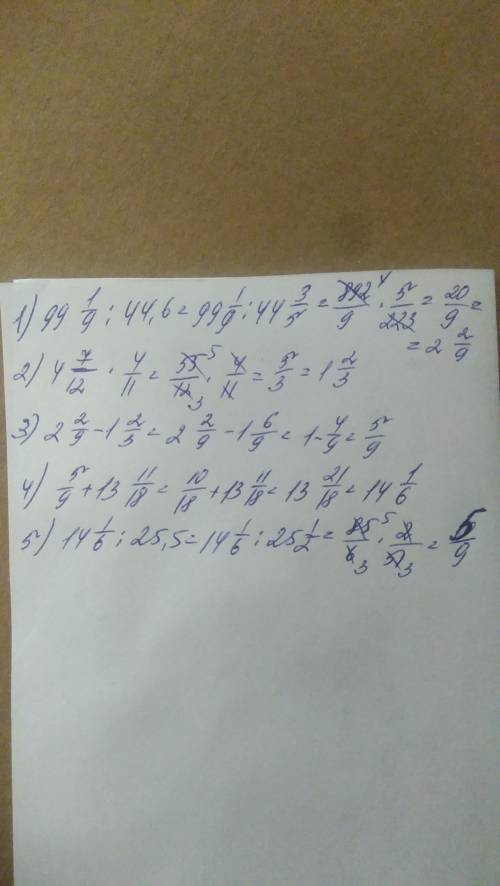 1) 99 1/9 : 44,6 = 99 1/9 : 44 3/5 = 892/9 4 · 5/223 = 20/9 =
= 2 2/9
2) 4 7/12 · 4/11 = 55/12 5 3 · 4/11 = 5/3 = 1 2/3
3) 2 2/9 - 1 2/3 = 2 2/9 - 1 6/9 = 1 - 4/9 = 5/9
4) 5/9 + 13 11/18 = 10/18 + 13 11/18 = 13 21/18 = 14 1/6
5) 14 1/6 : 25,5 = 14 1/6 : 25 1/2 = 85/6 5 3 · 2/51 3 = 5/9